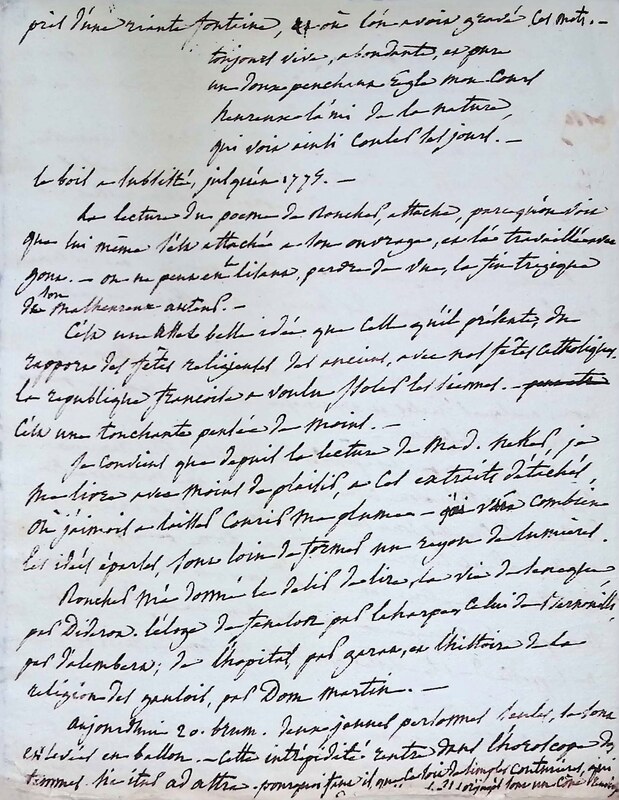 près d'une riante fontaine, où l'on avoit gravé ces mots. —
toujours vive, abondante, et pure
un doux penchant règle mon cours
heureux l'ami de la nature,
qui voit ainsi couler ses jours. —
le bois a subsisté, jusqu'en 1775. —
La lecture du poeme de Roucher, attache, parcequ'on voit
que lui même s'est attaché a son ouvrage, et l'a travaillé avec
gout. — on ne peut en lisant, perdre de vue, la fin tragique
de son malheureux auteur. —
C'est une belle idée que celle qu'il présente, du
rapport des fêtes religieuses des anciens, avec nos fêtes catholiques.
la republique françoise a voulu isoler les siennes. —
C'est une touchante pensée de moins. —
Je conviens que depuis la lecture de Mad. Neker, je
me livre avec moins de plaisir, a ces extraits détachés,
où j'aimois a laisser courir ma plume — combien
les idées éparses, sont loin de former un rayon de lumieres.
Roucher m'a donné le desir de lire, la vie de Seneque
par Diderot. l'éloge de fenelon par laharpe, celui de Bernouilli,
par d'alembert; de l'hopital, par garat, et l'histoire de la
religion des gaulois, par Dom martin. —
aujourd'hui 20. brum. deux jeunes personnes seules, se sont
enlevées en ballon. — cette intrépidité rentre dans l'horoscope des
femmes. sic itur ad astra. pourquoi faut il que ce soit de simples couturières, qui